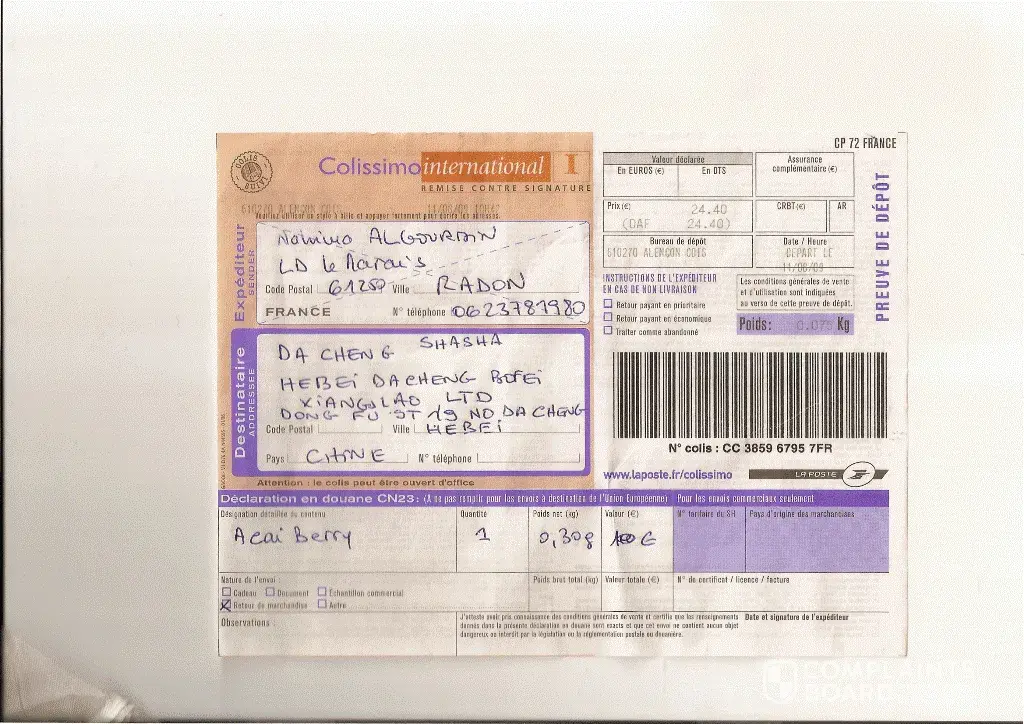 CP 72 FRANCE
COLIS
Colissimo international I
REMISE CONTRE SIGNATURE
610270 ALENÇON CDIS 11/08/09
Veuillez utiliser un stylo à bille et appuyer fortement pour écrire les adresses.
Expéditeur
SENDER
ALGOURDIN
LD le Marais
Code Postal 61250 Ville RADON
FRANCE N° téléphone 0623781980
Destinataire
ADDRESSEE
DA CHENG SHASHA
HEBEI DACHENG BOFEI
XIANGJIAO LTD
DONG FU ST 19 NO DA CHENG
Code Postal Ville HEBEI
Pays CHINE N° téléphone
Attention : le colis peut être ouvert d'office
Valeur déclarée
En EUROS (€) En DTS
Assurance
complémentaire (€)
Prix (€) 24.40
(DAF 24.40)
CRBT (€) AR
Bureau de dépôt
610270 ALENÇON CDIS
Date / Heure
DEPART LE
11/08/09
PREUVE DE DÉPÔT
INSTRUCTIONS DE L'EXPÉDITEUR
EN CAS DE NON LIVRAISON
Retour payant en prioritaire
Retour payant en économique
Traiter comme abandonné
Les conditions générales de vente
et d'utilisation sont indiquées
au verso de cette preuve de dépôt.
Poids: 0.075 Kg
N° colis : CC 3859 6795 7FR
www.laposte.fr/colissimo
LA POSTE
Déclaration en douane CN23 : (A ne pas remplir pour les envois à destination de l'Union Européenne) Pour les envois commerciaux seulement
Désignation détaillée du contenu Quantité Poids net (kg) Valeur (€) N° tarifaire du SH Pays d'origine des marchandises
Acai Berry 1 0,30g 100 €
Nature de l'envoi : Poids brut total (kg) Valeur totale (€) N° de certificat / licence / facture
Cadeau Document Échantillon commercial
Retour de marchandise Autre
Observations :
J'atteste avoir pris connaissance des conditions générales de vente et certifie que les renseignements
donnés dans la présente déclaration en douane sont exacts et que cet envoi ne contient aucun objet
dangereux ou interdit par la législation ou la réglementation postale ou douanière.
Date et signature de l'expéditeur
COMPLAINTS
BOARD